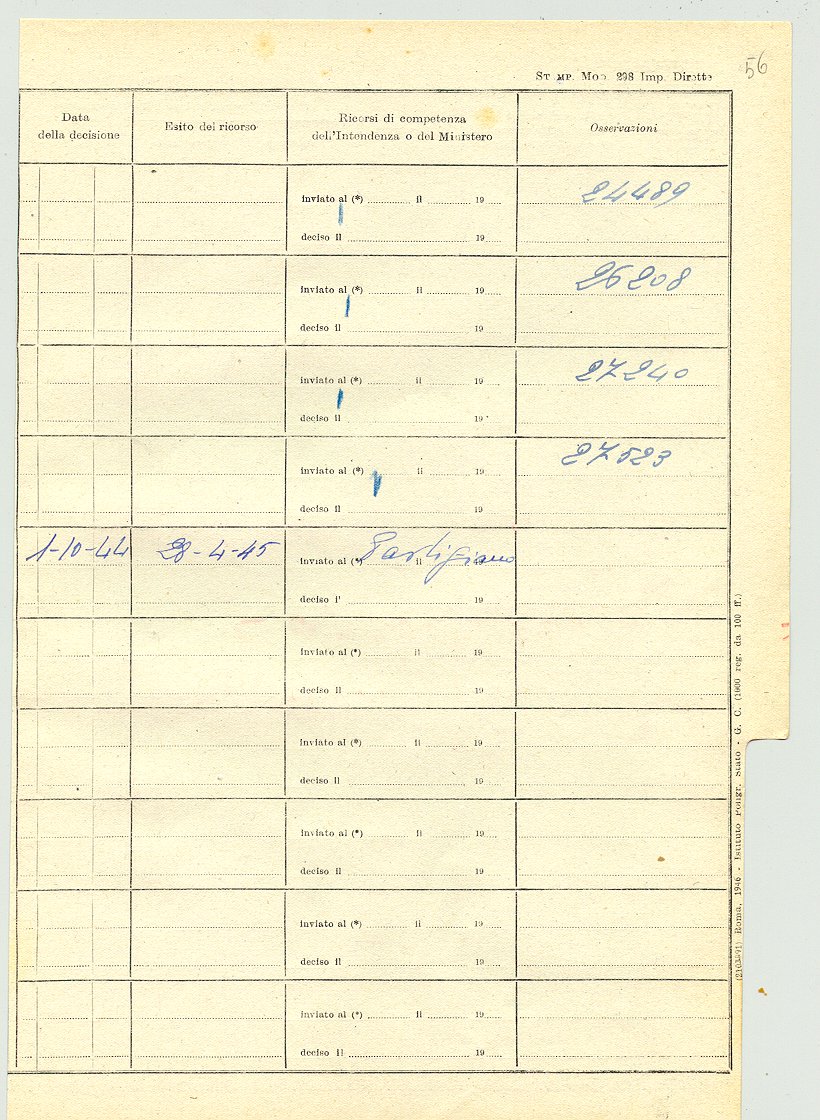 STAMP. Mod. 298 Imp. Dirette
56
Data della decisione
Esito del ricorso
Ricorsi di competenza dell'Intendenza o del Ministero
Osservazioni
inviato al (*) il 19
24489
deciso il 19
inviato al (*) il 19
26208
deciso il 19
inviato al (*) il 19
27240
deciso il 19
inviato al (*) il 19
27523
deciso il 19
1-10-44 28-4-45 inviato al (*) il 19 Partigiano
deciso il 19
inviato al (*) il 19
deciso il 19
inviato al (*) il 19
deciso il 19
inviato al (*) il 19
deciso il 19
inviato al (*) il 19
deciso il 19
inviato al (*) il 19
deciso il 19
Roma, 1946 - Istituto Poligr. Stato - G. C. (1000 reg. da 100 ff.)